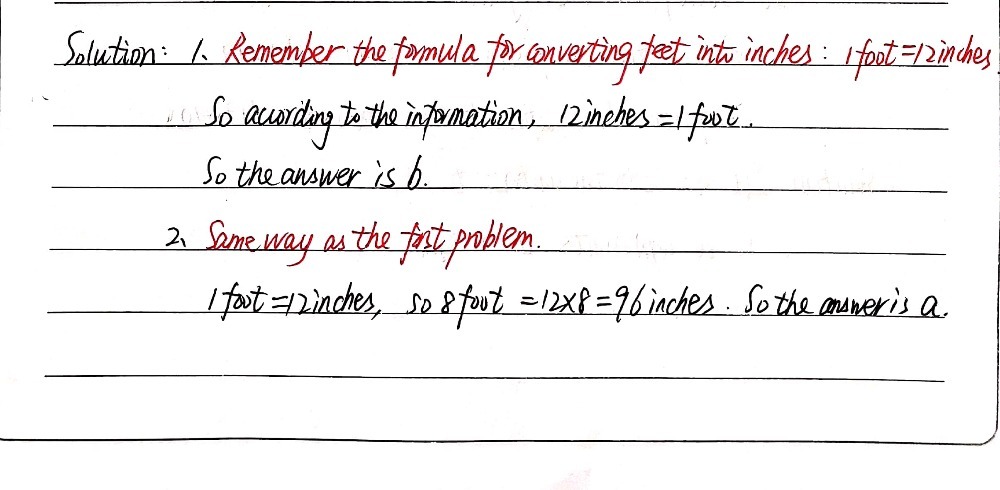 Solution: 1. Remember the formula for converting feet into inches: 1 foot=12inches
So acording to the information, 12inches=1foot.
So the answer is b.
2、Same way as the first problem.
1foot=12inches, so 8foot =12×8=96inches. So the answer is a.